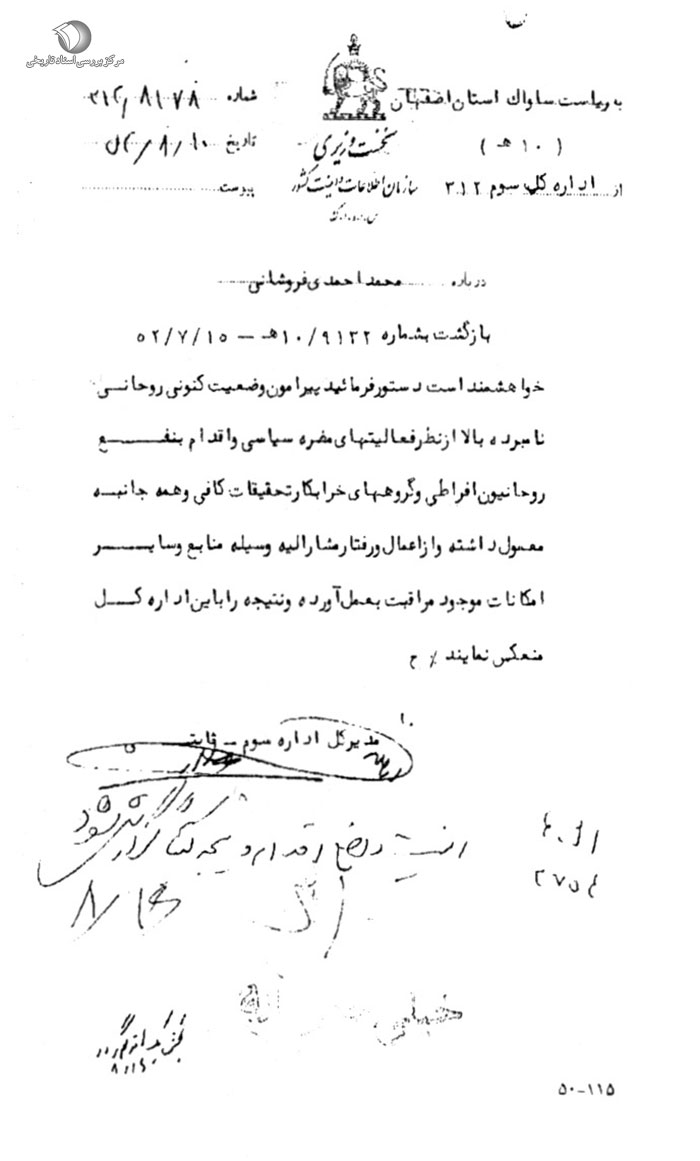 مرکز بررسی اسناد تاریخی
به ریاست ساواک استان اصفهان
( ۱۰ هـ )
از اداره کل سوم ۳۱۲
نخست وزیری
سازمان اطلاعات و امنیت کشور
س.ا.و.ا.ک
شماره ۳۱۲/۸۱۷۸
تاریخ ۱۰/۸/
پیوست
درباره محمد احمدی فروشانی
بازگشت بشماره ۱۰/۹۱۳۲هـ – ۵۲/۷/۱۵
خواهشمند است دستور فرمائید پیرامون وضعیت کنونی روحانی
نامبرده بالا از نظر فعالیتهای مضره سیاسی و اقدام بنفع
روحانیون افراطی و گروههای خرابکار تحقیقات کافی و همه جانبه
معمول داشته و از اعمال و رفتار مشارالیه وسیله منابع و سایر
امکانات موجود مراقبت بعمل آورده و نتیجه را باین اداره کل
منعکس نمایند ٪ ح
مدیر کل اداره سوم – ثابتی
اقدام و نتیجه گزارش شود
۲۷۵۴
۸/۱۴
خیلی
۵۰–۱۱۵